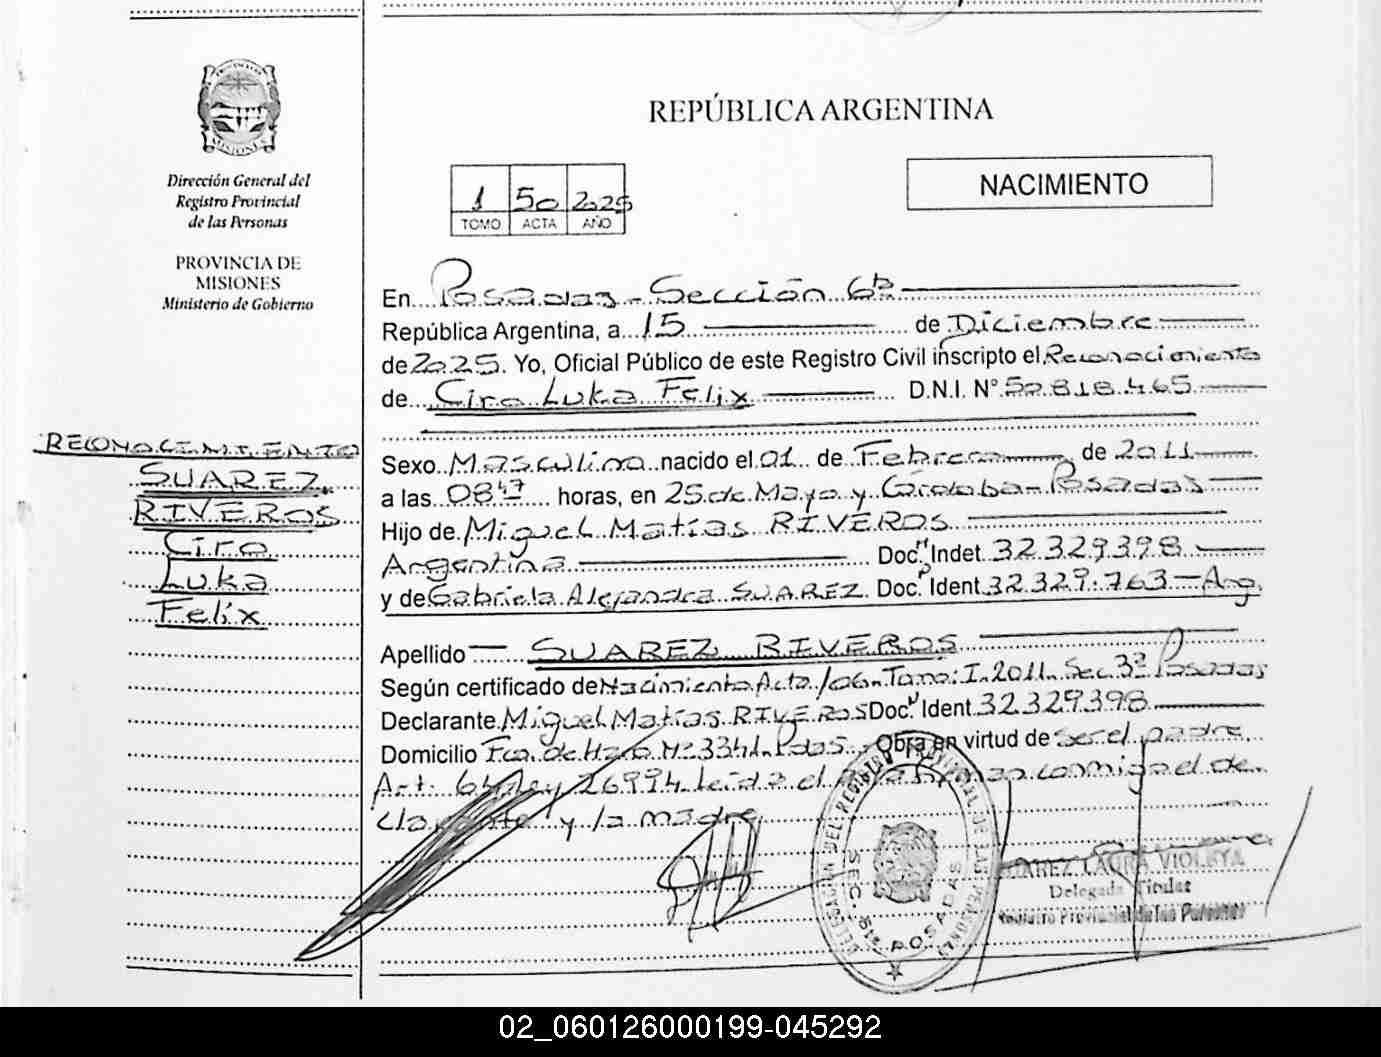 PROVINCIA DE
MISIONES
Dirección General del
Registro Provincial
de las Personas
PROVINCIA DE
MISIONES
Ministerio de Gobierno
RECONOCIMIENTO
SUAREZ
RIVEROS
Ciro
Luka
Felix
REPÚBLICA ARGENTINA
1 50 2025
TOMO ACTA AÑO
NACIMIENTO
En Posadas - Sección 6ta
República Argentina, a 15 de Diciembre
de 2025. Yo, Oficial Público de este Registro Civil inscripto el Reconocimiento
de Ciro Luka Felix D.N.I. N° 50.818.465
Sexo Masculino nacido el 01 de Febrero de 2011
a las 08:47 horas, en 25 de Mayo y Córdoba - Posadas
Hijo de Miguel Matías RIVEROS
Argentina Doc. Indet. 32.329.398
y de Gabriela Alejandra SUAREZ Doc. Ident 32.329.763 - Arg.
Apellido SUAREZ RIVEROS
Según certificado de Nacimiento Acta 106 - Tomo: I - 2011 - Sec. 3ª Posadas
Declarante Miguel Matías RIVEROS Doc. Ident 32.329.398
Domicilio Fco. de Haro N° 3341 - Pdas. - Obra en virtud de ser el padre
Art. 64 Ley 26994. Leída el Acta firman conmigo el de
clarante y la madre
DELEGACIÓN DEL REGISTRO PROVINCIAL DE LAS PERSONAS
SEC. 6ta. POSADAS
SUAREZ LAURA VIOLETA
Delegada Titular
Registro Provincial de las Personas
02_060126000199-045292